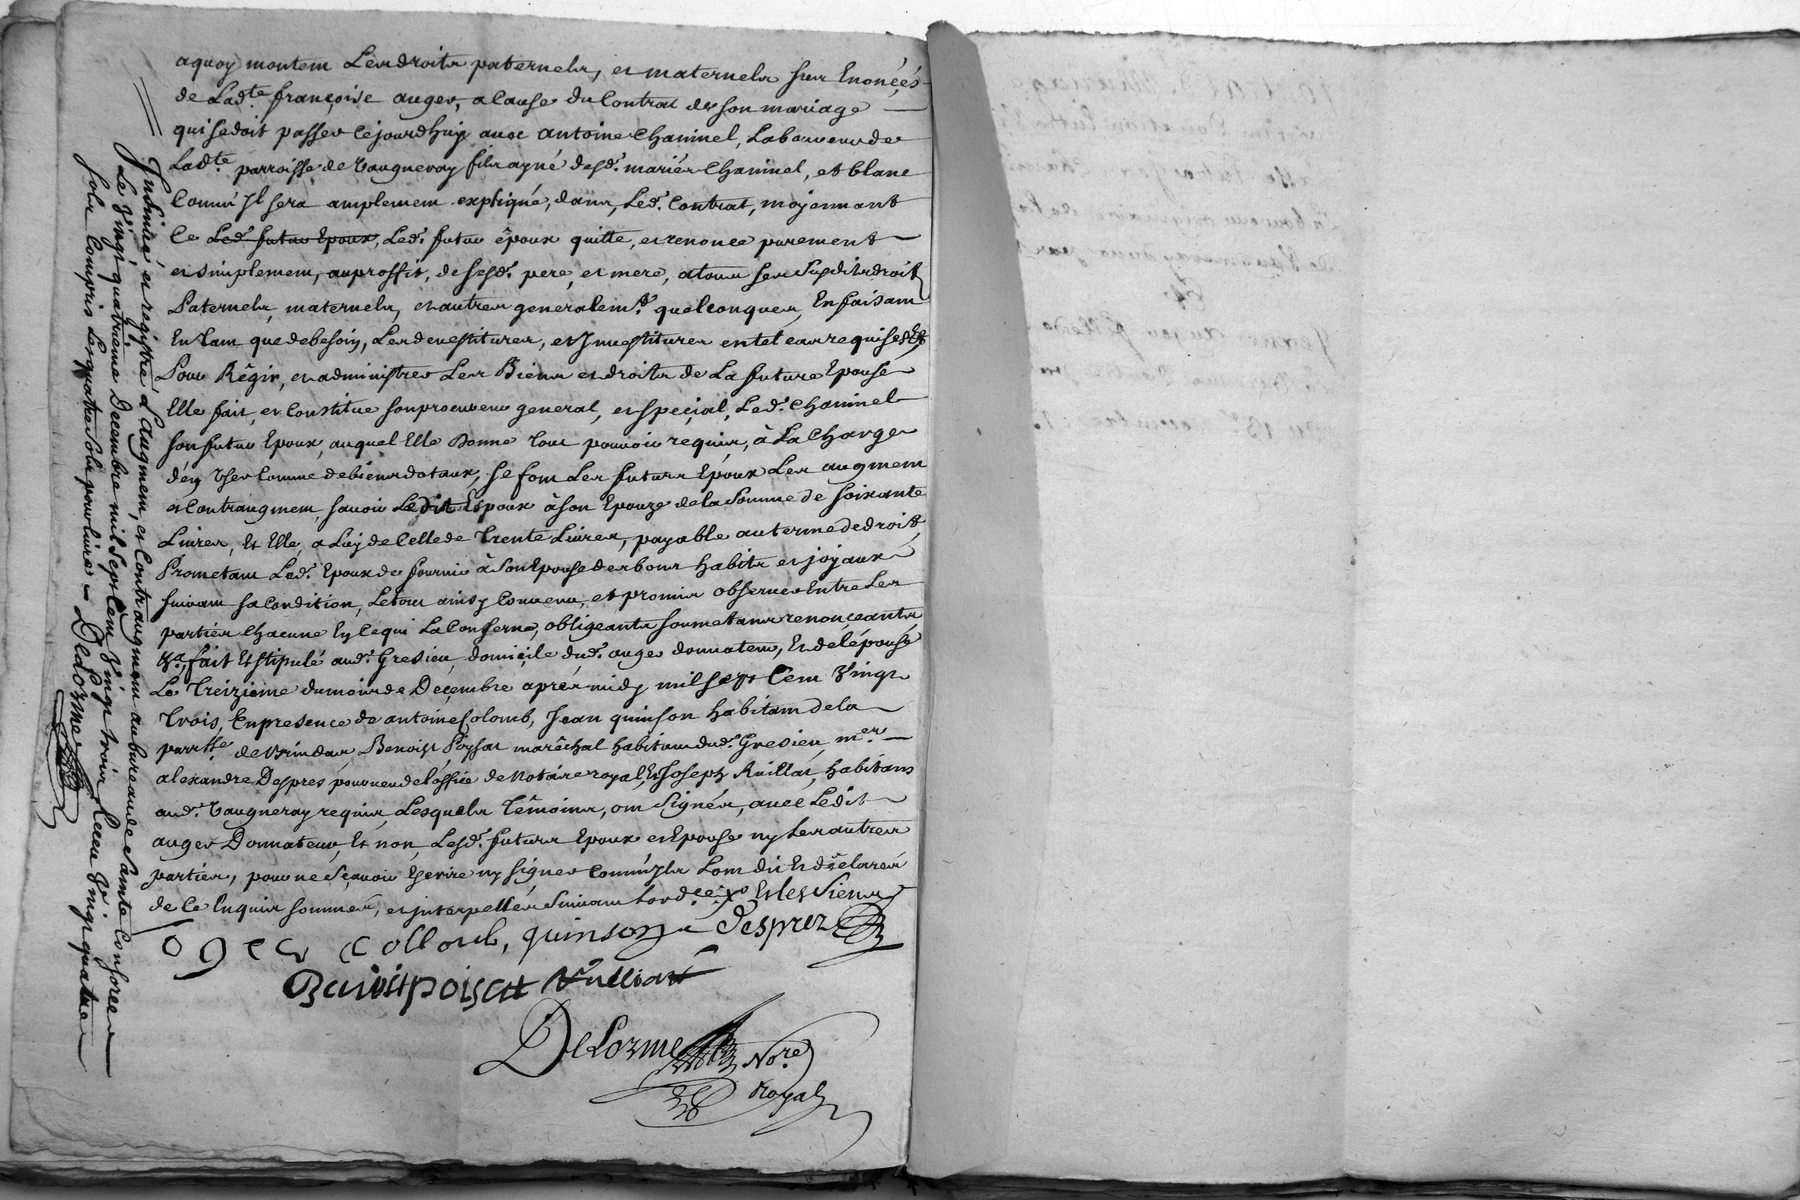 aquoy montem Les droits paternels, et maternels sus Enoncés
de Lad.te françoise auger, a Cause du Contrat de son mariage
qui se doit passer cejourdhuy avec antoine Chaninel, Laboureur de
Ladte parroisse de Vaugneray fils ayné desd. mariés Chaninel, et blanc
Comm'Jl sera amplemem expliqué, dans, Led. Contrat, moyennant
Ce Led. futur Epoux, Led. futur époux quitte, et renonce purement
et simplemem, au proffit, de sesd. pere, et mere, a tous ses Susdits droits
Paternels, maternels, et autres generalemt. quelconques, En faisam
En tam que de besoin, Les devestitures, et Jnvestitures en tel cas requises Et
Pour Régir, et administrer Les Biens et droits de La future Epouse
Elle fait, et Constitue son procureur general, et special, Led. Chaninel
son futur Epoux, auquel Elle Donne tout pouvoir requis, à La Charge
d'en User Comme de biens dotaux, se fom Les futurs Epoux Les augmem
et Contraugmem, savoir Ledit Epoux à son Epouze de la Somme de soixante
Livres, Et Elle, a Luy de Celle de Trente Livres, payable au terme de droit,
Prometam Led. Epoux de fournir à Son Epouse des bons habits et joyaux
suivam sa Condition, Le tout ainsy Convenu, et promis observer Entre Les
parties Chacune En Ce qui La Conserne, obligeants soumetans renonçeants
&a. fait Et Stipulé aud. Gresieu, domicile dud. auger donnateur, Et de lépouse
Le Treizieme du mois de Decembre aprés midy mil sept Cem Vingt
Trois, En presence de antoine Colomb, Jean quinson habitam de la
parrsse de Brindas, Benoist Poysat maréchal habitam dud. Gresieu, mer.
alexandre Després pourveu de l'office de Notaire royal, Et Joseph Ruillat, habitans
aud. Vaugneray requis, Lesquels Témoins, om Signés, avec Ledit
auger Donnateur, Et non, Lesd. futurs Epoux et Epouse ny Les autres
parties, pour ne Sçavoir Escrire ny signer Comm'Jls Lom dit Et déclaré
de Ce Enquis sommés, et interpellés Suivam Lord.ce Et les Siens
oger Collonb, quinson Desprez
Benoit poisat Vulliat
DeLorme Nore.
Royal
Jnsinué et registré L'augmem, et Contraugmem au bureau de Sainte Consorce
Le Vingt quatrieme Decembre mil Sept Cem Vingt trois, Receu Vingt quatre
sols Compris Les quatre Sols pour Livre – DeLorme